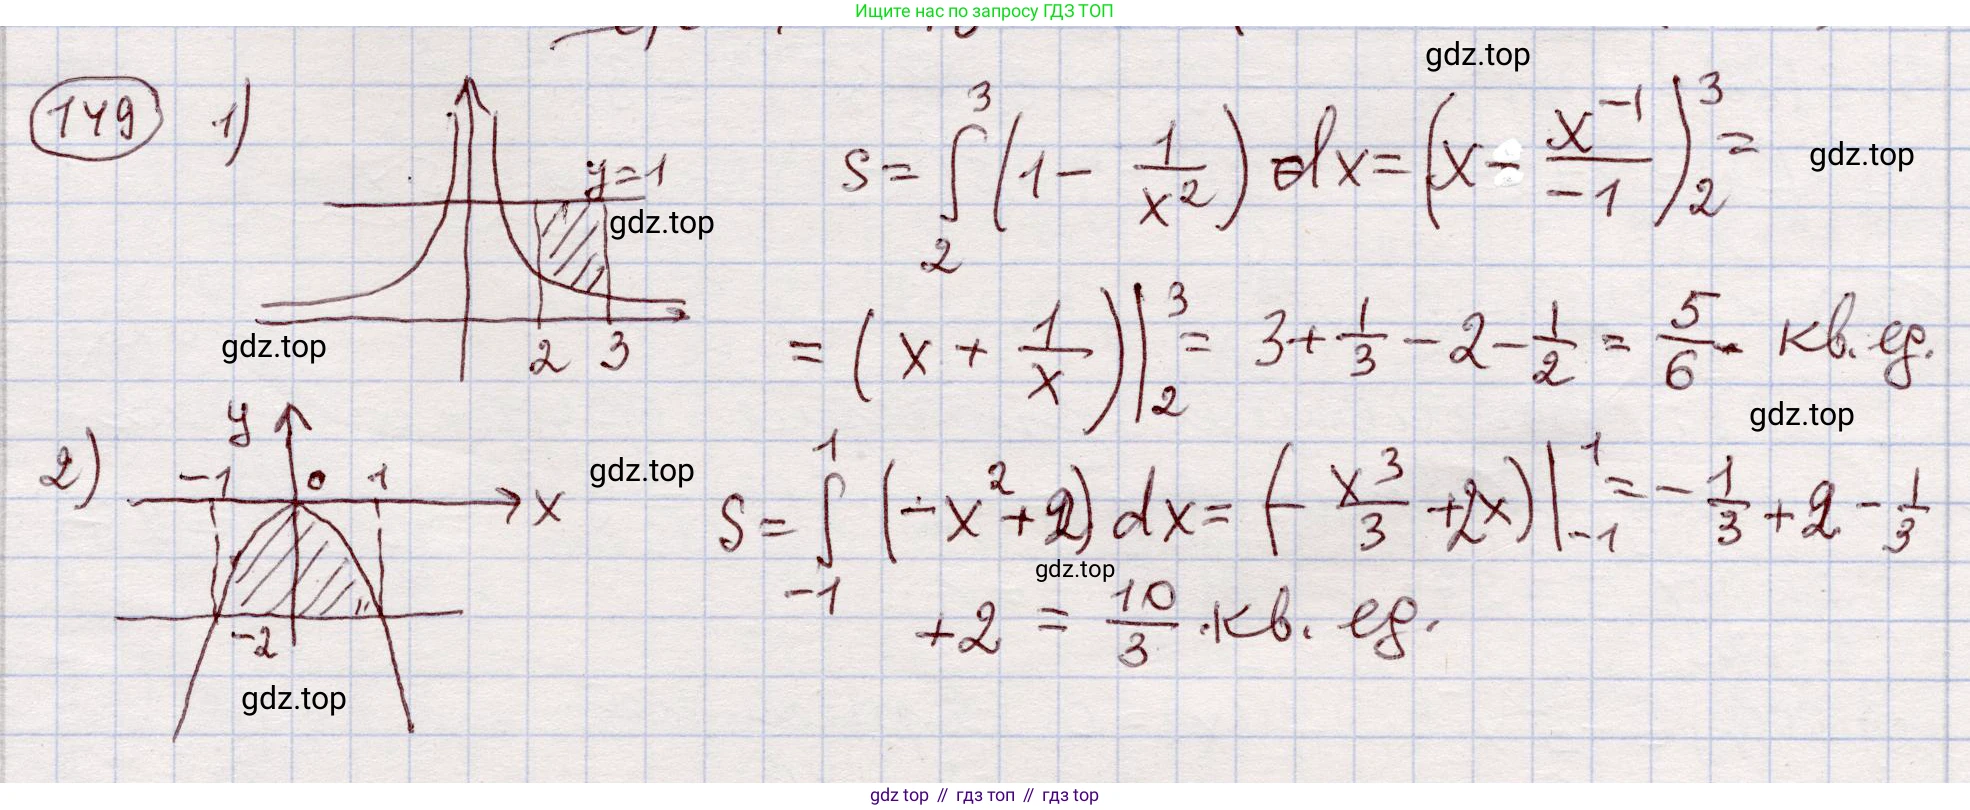 Ищите нас по запросу ГДЗ ТОП
gdz.top
149 1) y=1 2 3
S = ∫₂³ (1 - 1/x²) dx = (x - x⁻¹/-1)|₂³ =
gdz.top
gdz.top
= (x + 1/x)|₂³ = 3 + 1/3 - 2 - 1/2 = 5/6 кв. ед.
gdz.top
gdz.top
2) y -1 0 1 x -2
gdz.top
S = ∫₋₁¹ (-x² + 2) dx = (- x³/3 + 2x)|₋₁¹ = - 1/3 + 2 - 1/3
gdz.top
+ 2 = 10/3 кв. ед.
gdz.top
gdz top // гдз топ // гдз top